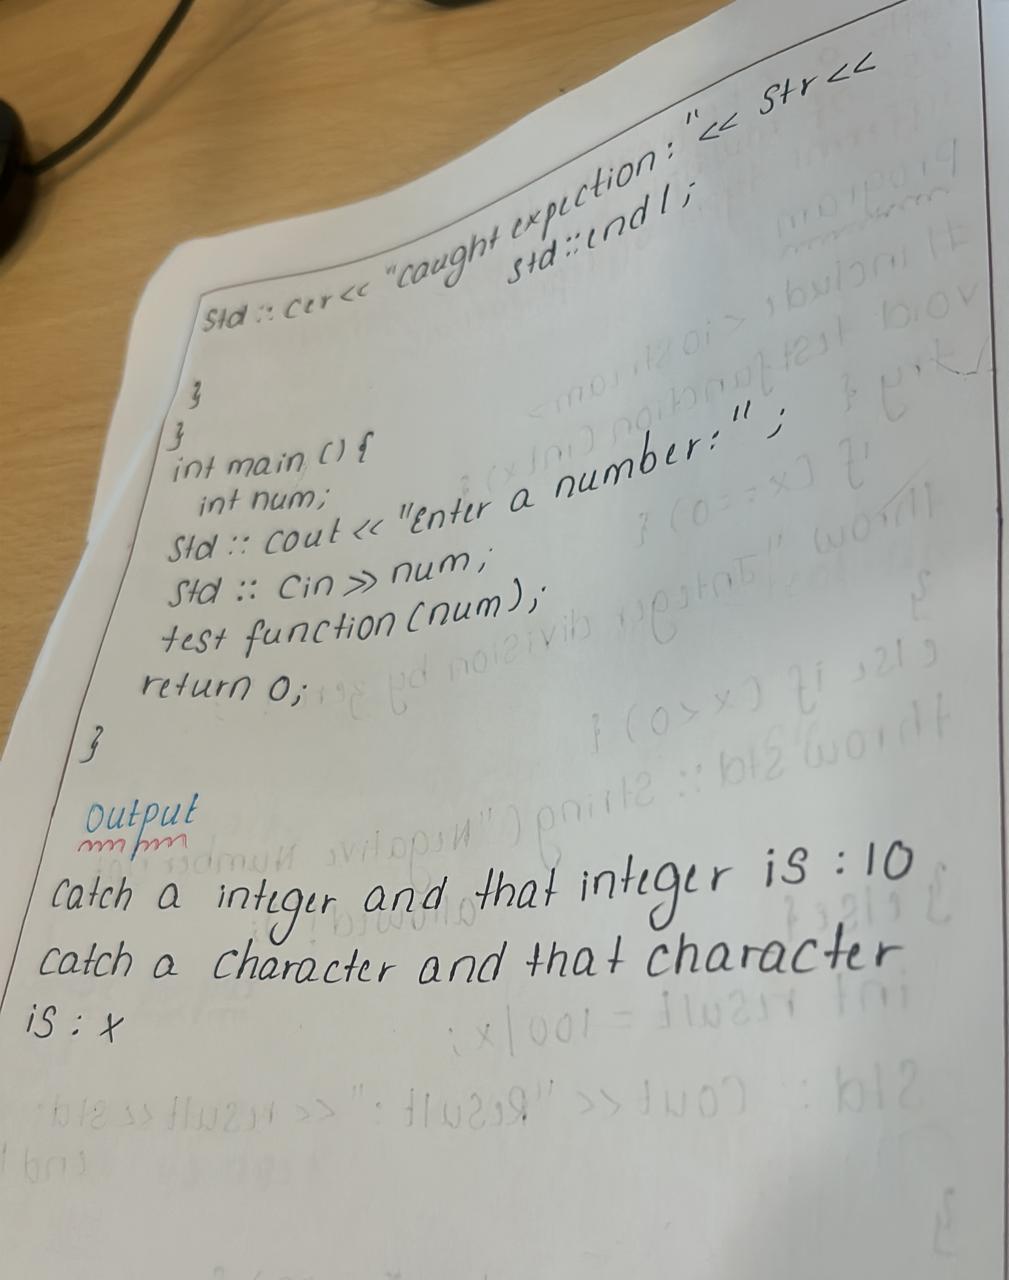 Std :: cer << "caught expection : " << Str <<
std :: endl ;
}
}
int main () {
int num;
Std :: cout << "Enter a number: " ;
Std :: Cin >> num ;
test function (num) ;
return 0;
}
Output
catch a integer and that integer is : 10
catch a character and that character
is : x